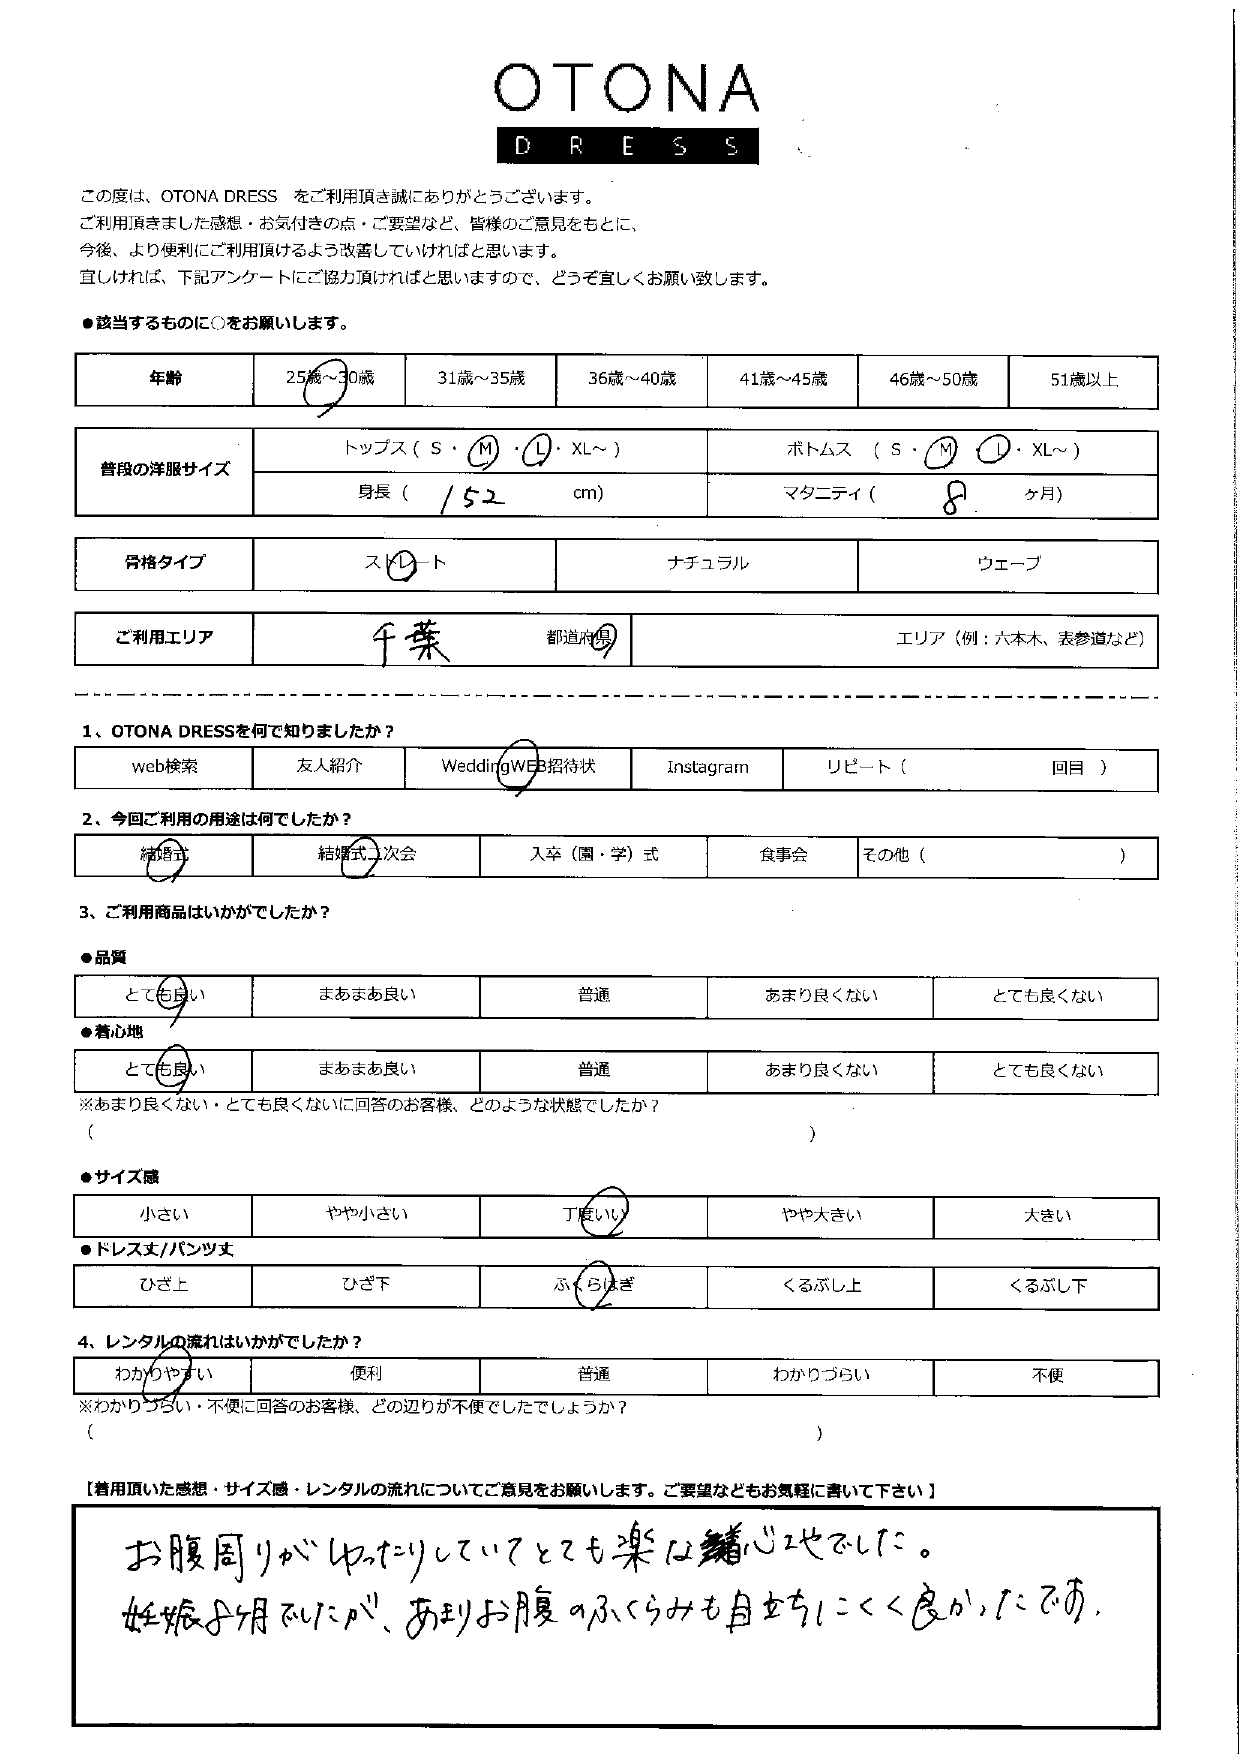 OTONA
DRESS
この度は、OTONA DRESS をご利用頂き誠にありがとうございます。
ご利用頂きました感想・お気付きの点・ご要望など、皆様のご意見をもとに、
今後、より便利にご利用頂けるよう改善していければと思います。
宜しければ、下記アンケートにご協力頂ければと思いますので、どうぞ宜しくお願い致します。
●該当するものに○をお願いします。
年齢 25歳～30歳 31歳～35歳 36歳～40歳 41歳～45歳 46歳～50歳 51歳以上
普段の洋服サイズ トップス ( S ・ M ・ L ・ XL～ ) ボトムス ( S ・ M ・ L ・ XL～ )
身長 ( 152 cm) マタニティ ( 8 ヶ月)
骨格タイプ ストレート ナチュラル ウェーブ
ご利用エリア 千葉 都道府県 エリア（例：六本木、表参道など）
1、OTONA DRESSを何で知りましたか？
web検索 友人紹介 WeddingWEB招待状 Instagram リピート（ 回目 ）
2、今回ご利用の用途は何でしたか？
結婚式 結婚式二次会 入卒（園・学）式 食事会 その他（ ）
3、ご利用商品はいかがでしたか？
●品質
とても良い まあまあ良い 普通 あまり良くない とても良くない
●着心地
とても良い まあまあ良い 普通 あまり良くない とても良くない
※あまり良くない・とても良くないに回答のお客様、どのような状態でしたか？
（ ）
●サイズ感
小さい やや小さい 丁度いい やや大きい 大きい
●ドレス丈/パンツ丈
ひざ上 ひざ下 ふくらはぎ くるぶし上 くるぶし下
4、レンタルの流れはいかがでしたか？
わかりやすい 便利 普通 わかりづらい 不便
※わかりづらい・不便に回答のお客様、どの辺りが不便でしたでしょうか？
（ ）
【着用頂いた感想・サイズ感・レンタルの流れについてご意見をお願いします。ご要望などもお気軽に書いて下さい】
お腹周りがゆったりしていてとても楽な着心地でした。
妊娠8ヶ月でしたが、あまりお腹のふくらみも目立ちにくく良かったです。